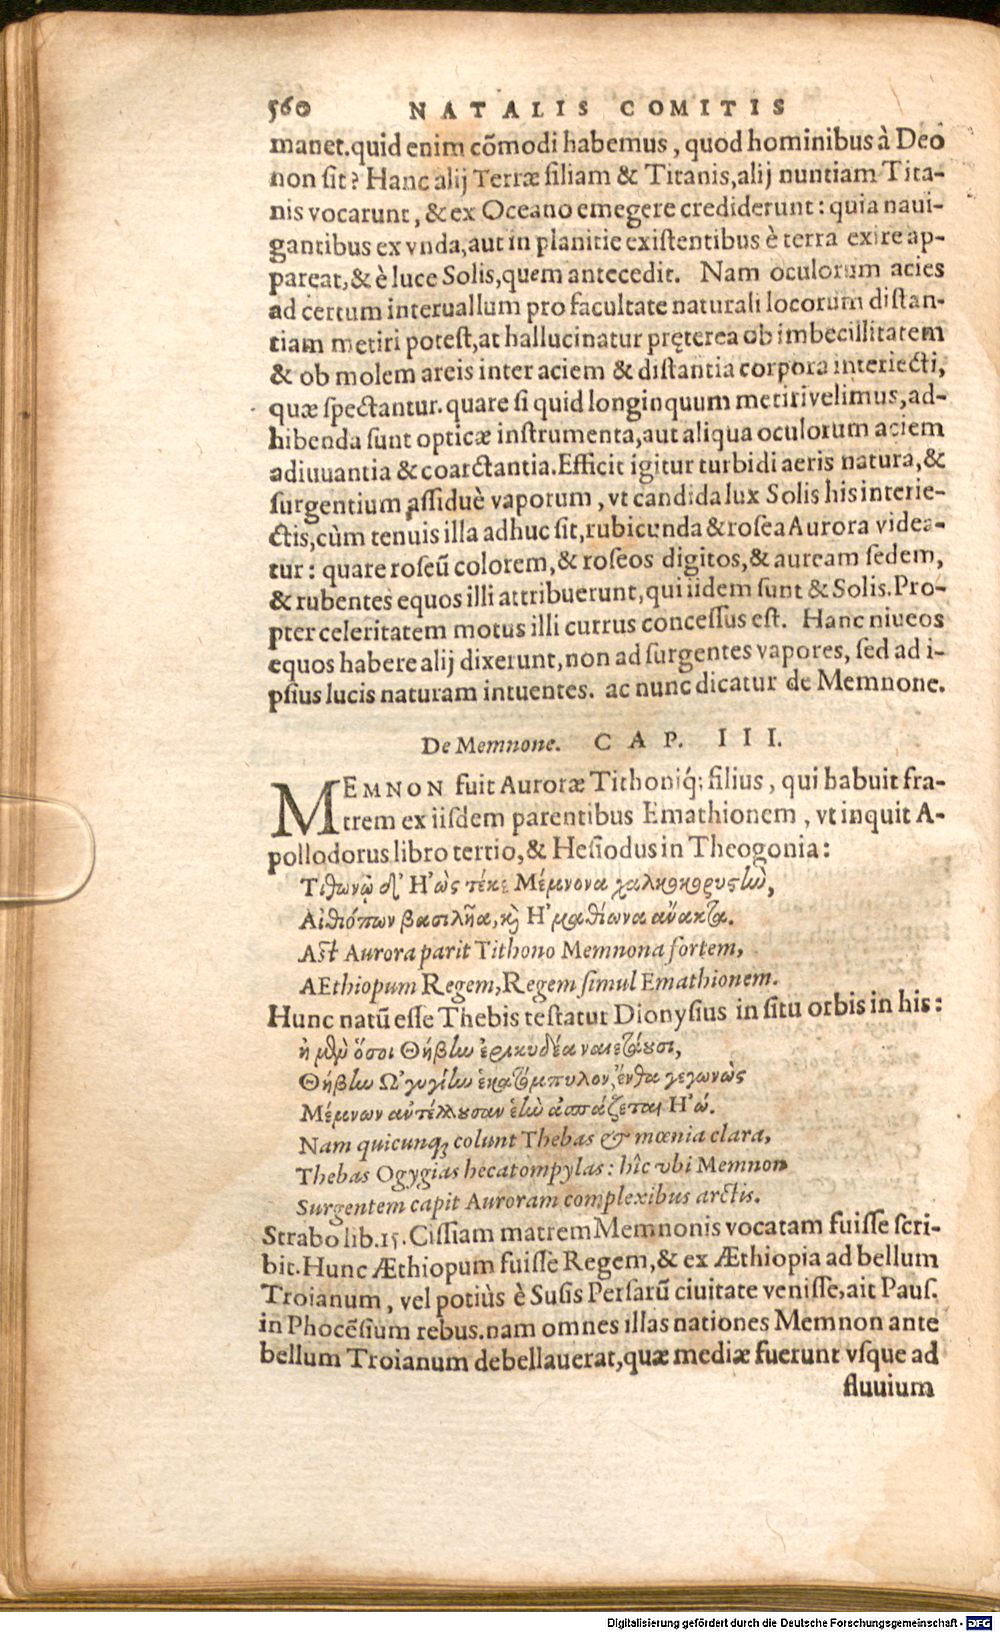 560 NATALIS COMITIS
manet.quid enim cõmodi habemus, quod hominibus à Deo
non sit? Hanc alij Terræ filiam & Titanis, alij nuntiam Tita-
nis vocarunt, & ex Oceano emegere crediderunt: quia naui-
gantibus ex vnda, aut in planitie existentibus è terra exire ap-
pareat, & è luce Solis, quem antecedit. Nam oculorum acies
ad certum interuallum pro facultate naturali locorum distan-
tiam metiri potest, at hallucinatur pręterea ob imbecillitatem
& ob molem areis inter aciem & distantia corpora interiecti,
quæ spectantur. quare si quid longinquum metiri velimus, ad-
hibenda sunt opticæ instrumenta, aut aliqua oculorum aciem
adiuuantia & coarctantia. Efficit igitur turbidi aeris natura, &
surgentium assiduè vaporum, vt candida lux Solis his interie-
ctis, cùm tenuis illa adhuc sit, rubicunda & rosea Aurora videa-
tur: quare roseũ colorem, & roseos digitos, & auream sedem,
& rubentes equos illi attribuerunt, qui iidem sunt & Solis. Pro-
pter celeritatem motus illi currus concessus est. Hanc niueos
equos habere alij dixerunt, non ad surgentes vapores, sed ad i-
psius lucis naturam intuentes. ac nunc dicatur de Memnone.
De Memnone. CAP. III.
MEMNON fuit Auroræ Tithoniq́; filius, qui habuit fra-
trem ex iisdem parentibus Emathionem, vt inquit A-
pollodorus libro tertio, & Hesiodus in Theogonia:
Τιθωνῷ δ' Ἠὼς τέκε Μέμνονα χαλκοκορυστὼ,
Αἰθιόπων βασιλῆα, καὶ Ἠμαθίωνα ἄνακτα.
Ast Aurora parit Tithono Memnona fortem,
AEthiopum Regem, Regem simul Emathionem.
Hunc natũ esse Thebis testatur Dionysius in situ orbis in his:
ἠ μὲν ὅσοι Θήβην ἐρικυδέα ναιετάουσι,
Θήβην Ὠγυγίην ἑκατόμπυλον, ἔνθα γεγωνὼς
Μέμνων αὐτέλλουσαν ἑὼ ἀσπάζεται Ἠώ.
Nam quicunq; colunt Thebas & mœnia clara,
Thebas Ogygias hecatompylas: hîc vbi Memnon
Surgentem capit Auroram complexibus arctis.
Strabo lib.15. Cissiam matrem Memnonis vocatam fuisse scri-
bit. Hunc Æthiopum fuisse Regem, & ex Æthiopia ad bellum
Troianum, vel potiùs è Susis Persarũ ciuitate venisse, ait Paus.
in Phocẽsium rebus. nam omnes illas nationes Memnon ante
bellum Troianum debellauerat, quæ mediæ fuerunt vsque ad
fluuium
Digitalisierung gefördert durch die Deutsche Forschungsgemeinschaft - DFG